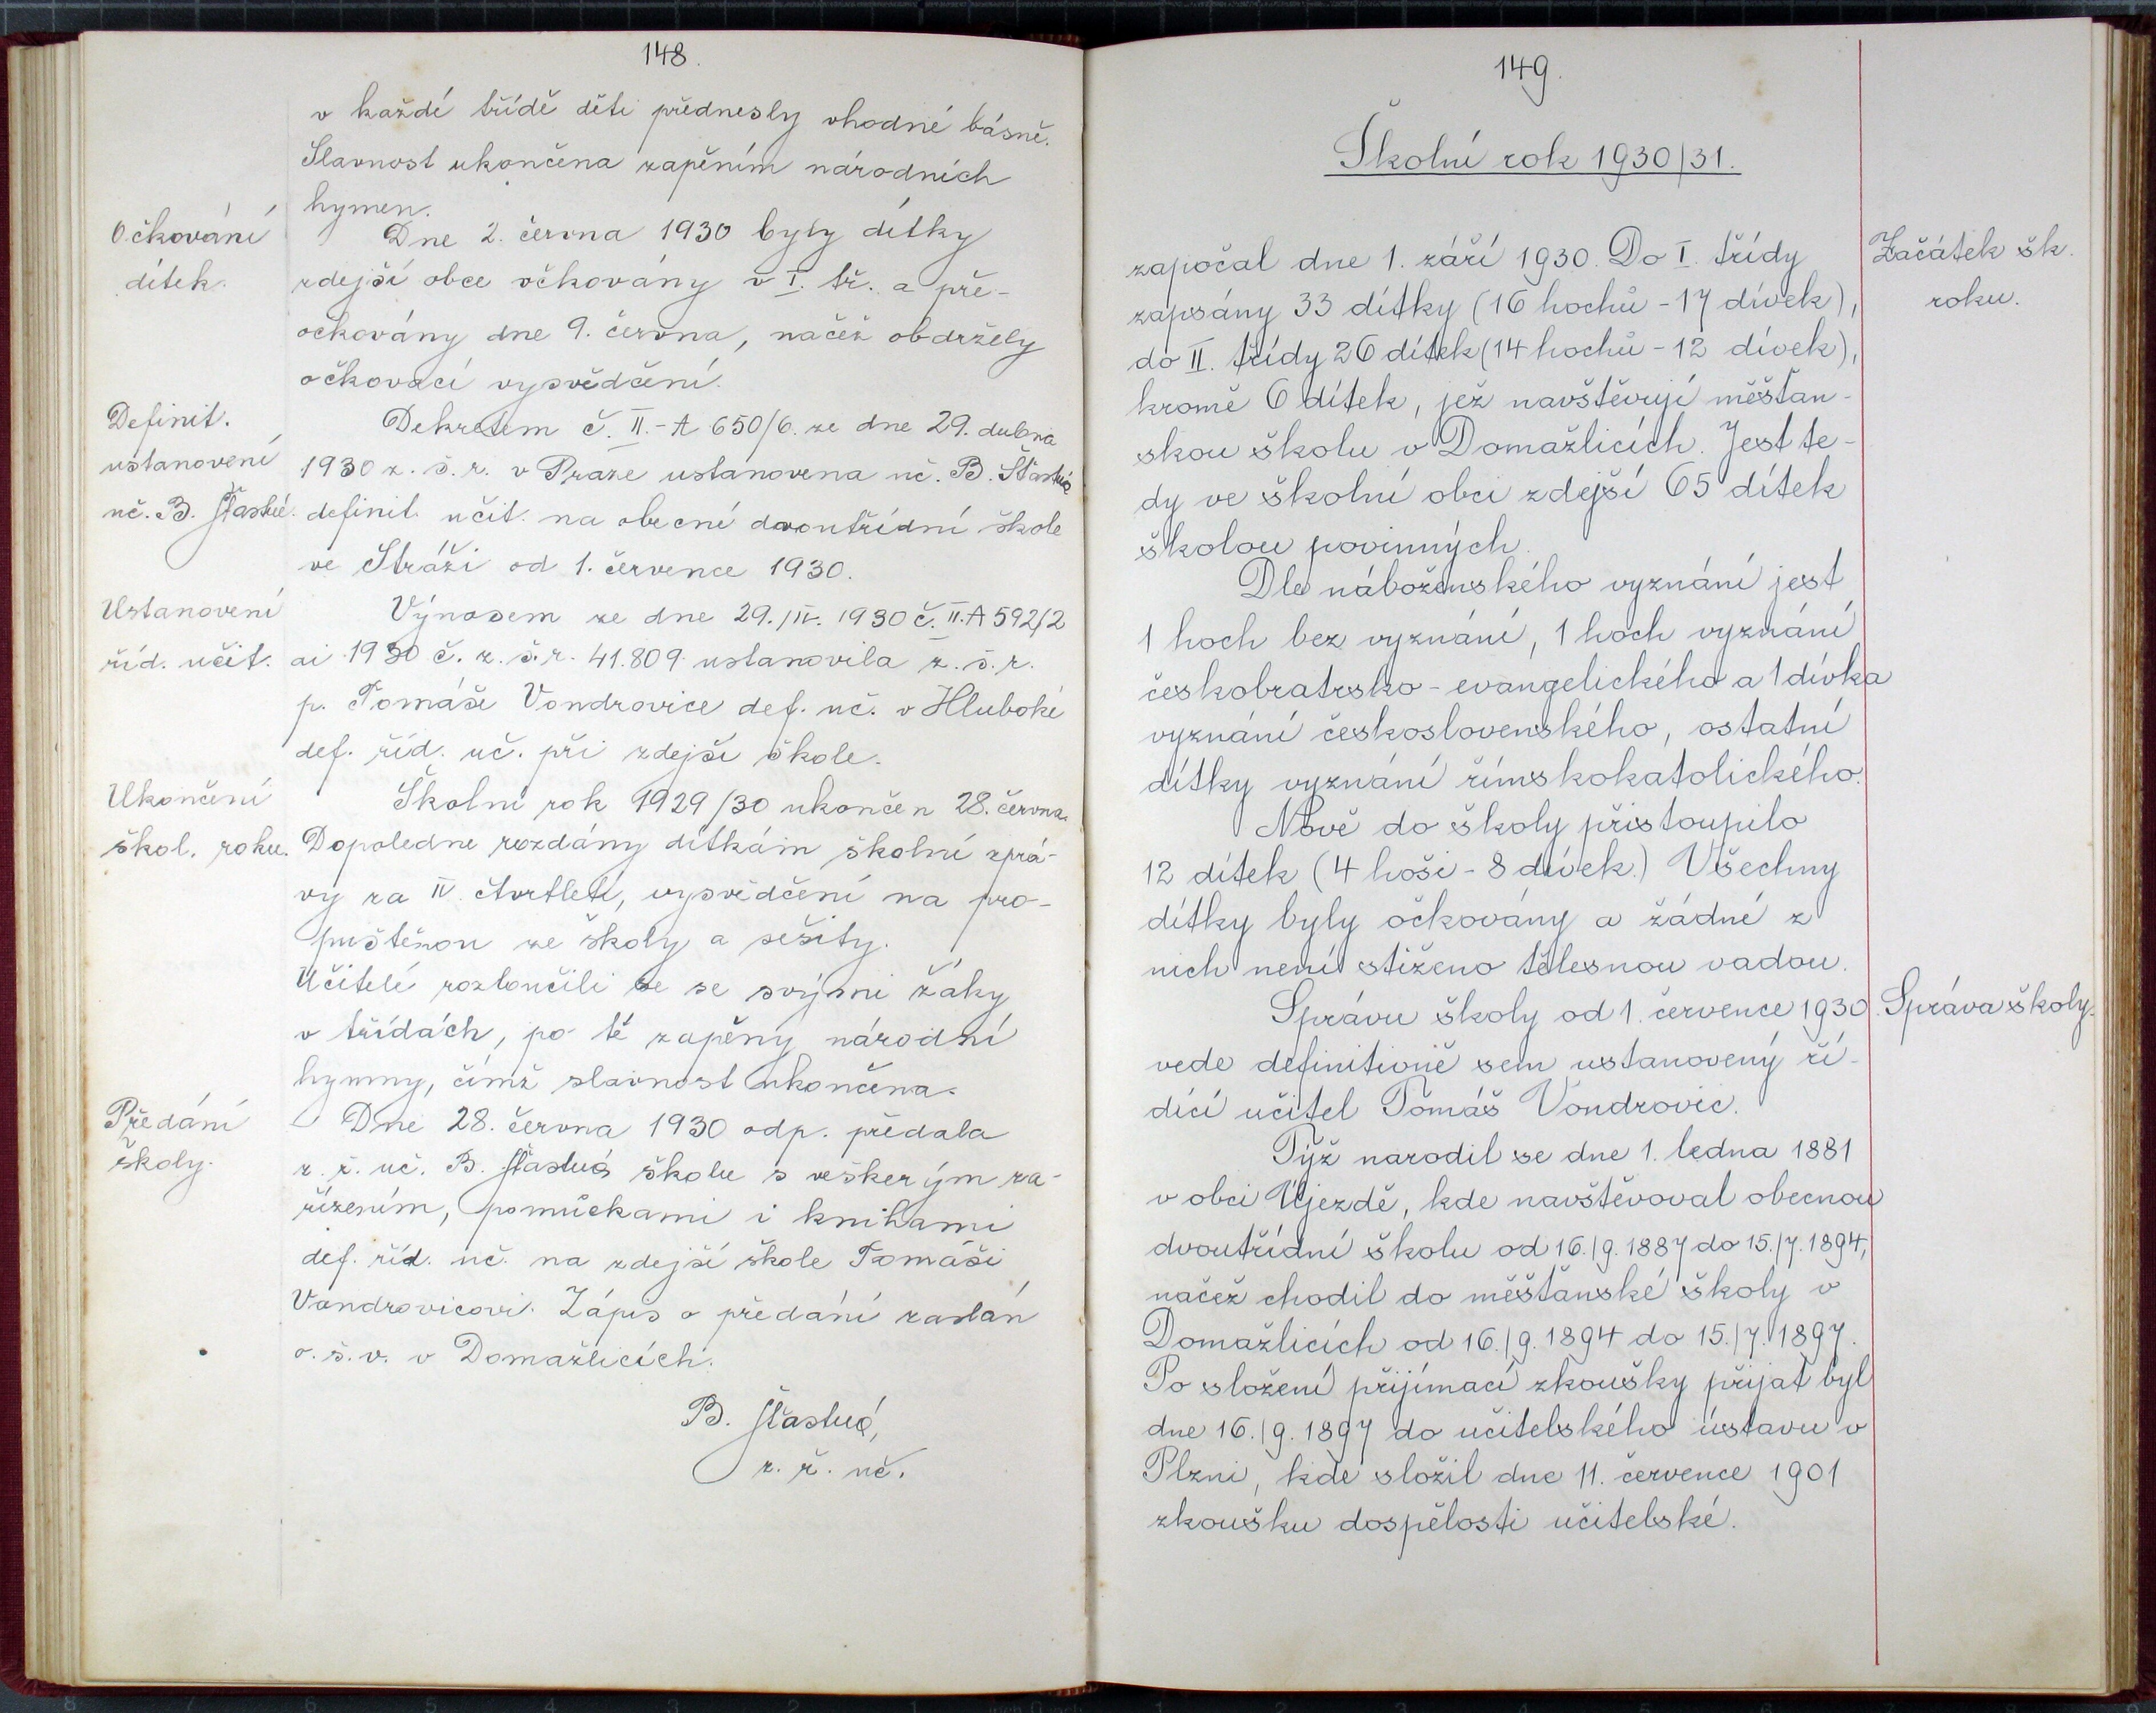 148.
v každé třídě děti přednesly vhodné básně.
Slavnost ukončena zapěním národních
hymen.
Očkování
dítek.
Dne 2. června 1930 byly dítky
zdejší obce očkovány v I. tř. a pře-
očkovány dne 9. června, načež obdržely
očkovací vysvědčení.
Definit.
ustanovení
uč. B. Šťastné.
Dekretem č. II.-A 650/6. ze dne 29. dubna
1930 z. š. r. v Praze ustanovena uč. B. Šťastná
definit. učit. na obecné dvoutřídní škole
ve Stráži od 1. července 1930.
Ustanovení
říd. učit.
Výnosem ze dne 29./IV. 1930 č. II. A 592/2
ai 1930 č. z. š. r. 41.809 ustanovila z. š. r.
p. Tomáše Vondrovice def. uč. v Hluboké
def. říd. uč. při zdejší škole.
Ukončení
škol. roku.
Školní rok 1929/30 ukončen 28. června.
Dopoledne rozdány dítkám školní zprá-
vy za IV. čtvrtletí, vysvědčení na pro-
puštěnou ze školy a sešity.
Učitelé rozloučili se se svými žáky
v třídách, po té zapěny národní
hymny, čímž slavnost ukončena.
Předání
školy.
Dne 28. června 1930 odp. předala
z. ř. uč. B. Šťastná školu s veškerým za-
řízením, pomůckami i knihami
def. říd. uč. na zdejší škole Tomáši
Vondrovicovi. Zápis o předání zaslán
o. š. v. v Domažlicích.
B. Šťastná,
z. ř. uč.
149.
Školní rok 1930/31.
Začátek šk.
roku.
započal dne 1. září 1930. Do I. třídy
zapsány 33 dítky (16 hochů - 17 dívek),
do II. třídy 26 dítek (14 hochů - 12 dívek),
kromě 6 dítek, jež navštěvují měšťan-
skou školu v Domažlicích. Jest te-
dy ve školní obci zdejší 65 dítek
školou povinných.
Dle náboženského vyznání jest
1 hoch bez vyznání, 1 hoch vyznání
českobratrsko-evangelického a 1 dívka
vyznání československého, ostatní
dítky vyznání římskokatolického.
Nově do školy přistoupilo
12 dítek (4 hoši - 8 dívek.) Všechny
dítky byly očkovány a žádné z
nich není stiženo tělesnou vadou.
Správu školy od 1. července 1930. Správa školy.
vede definitivně sem ustanovený ří-
dící učitel Tomáš Vondrovic.
Týž narodil se dne 1. ledna 1881
v obci Újezdě, kde navštěvoval obecnou
dvoutřídní školu od 16./9. 1887 do 15./7. 1894,
načež chodil do měšťanské školy v
Domažlicích od 16./9. 1894 do 15./7. 1897.
Po složení přijímací zkoušky přijat byl
dne 16./9. 1897 do učitelského ústavu v
Plzni, kde složil dne 11. července 1901
zkoušku dospělosti učitelské.